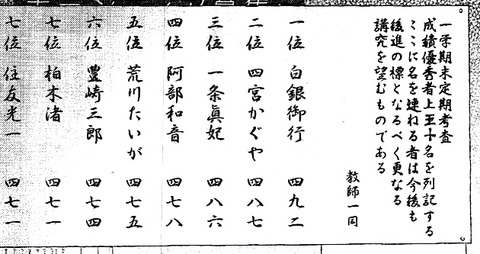 一学期末定期考査
成績優秀者上至十名を列記する
ここに名を連ねる者は今後も
後進の標となるべく更なる
講究を望むものである
教師一同
一位 白銀御行 四九二
二位 四宮かぐや 四八七
三位 一条眞妃 四八六
四位 阿部和音 四七八
五位 荒川たいが 四七五
六位 豊崎三郎 四七四
七位 柏木渚 四七一
七位 住友光一 四七一